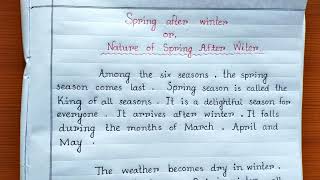 Spring after winter
or,
Nature of Spring After Witer
Among the six seasons . the spring
season comes last . Spring season is called the
King of all seasons . It is a delightful season for
everyone . It arrives after winter . It falls
during the months of March . April and
May .
The weather becomes dry in winter .